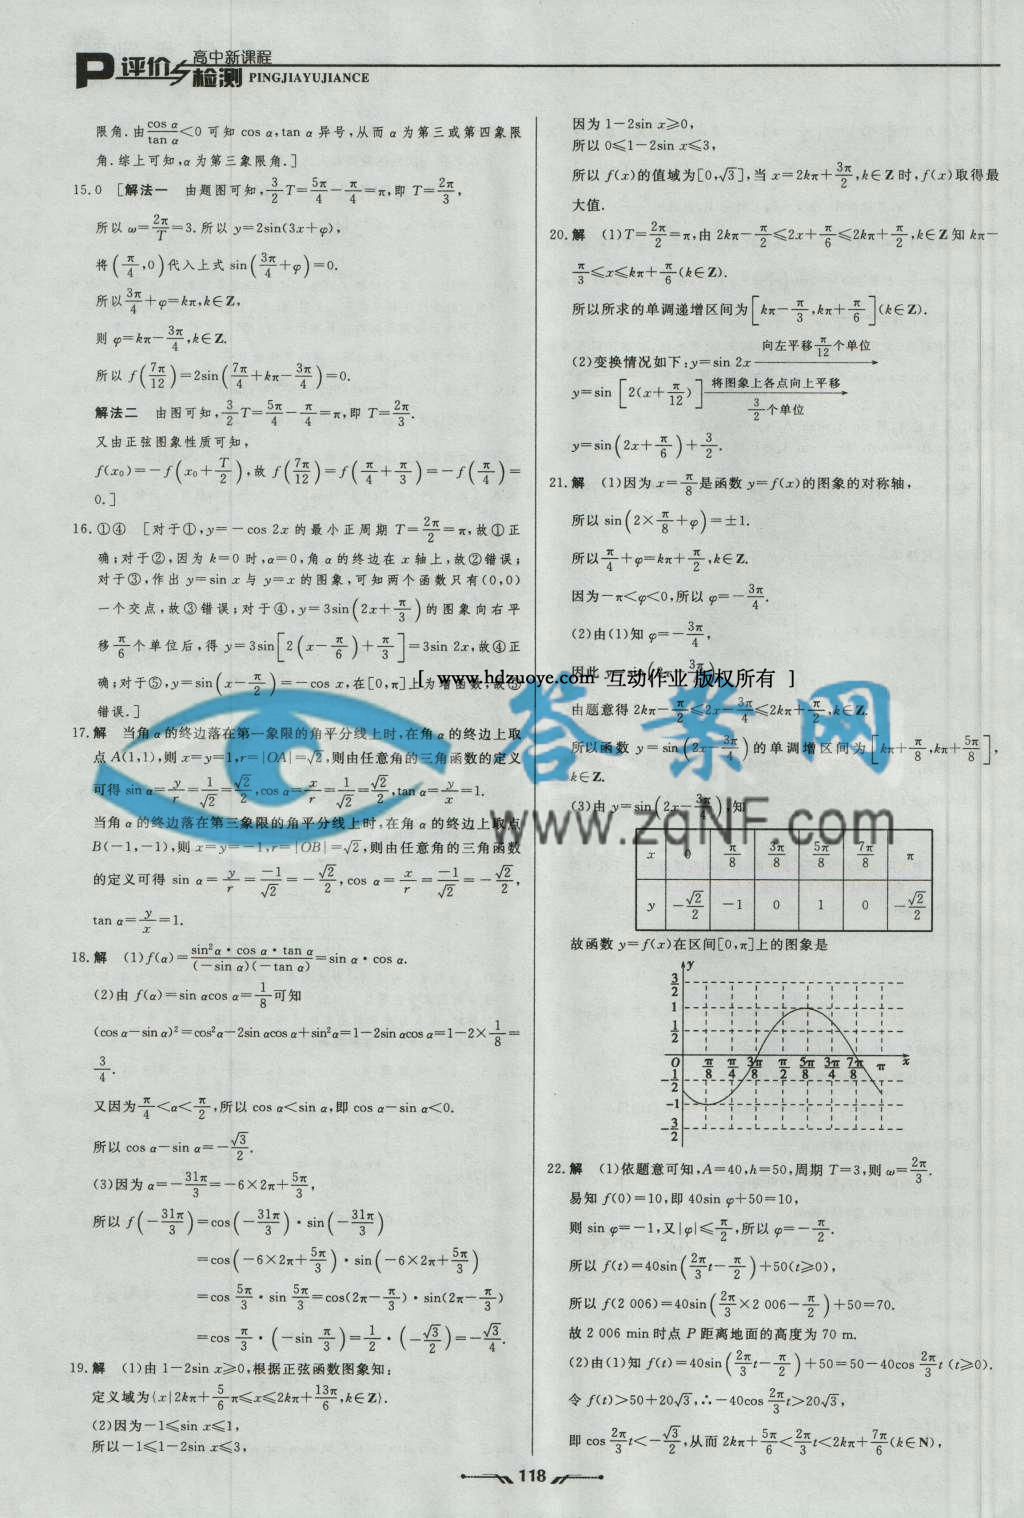 P 评价与检测 高中新课程
PINGJIAYUJIANCE
限角.由cos α/tan α<0 可知 cos α,tan α 异号,从而 α 为第三或第四象限
角.综上可知,α为第三象限角.]
15.0 [解法一 由题图可知,3/2T=5π/4-π/4=π,即 T=2π/3,
所以 ω=2π/T=3.所以 y=2sin(3x+φ),
将(π/4,0)代入上式 sin(3π/4+φ)=0.
所以3π/4+φ=kπ,k∈Z,
则 φ=kπ-3π/4,k∈Z.
所以 f(7π/12)=2sin(7π/4+kπ-3π/4)=0.
解法二 由图可知,3/2T=5π/4-π/4=π,即 T=2π/3.
又由正弦图象性质可知,
f(x₀)=-f(x₀+T/2),故 f(7π/12)=f(π/4+π/3)=-f(π/4)=
0.]
16.①④ [对于①,y=-cos 2x 的最小正周期 T=2π/2=π,故①正
确;对于②,因为 k=0 时,α=0,角 α 的终边在 x 轴上,故②错误;
对于③,作出 y=sin x 与 y=x 的图象,可知两个函数只有(0,0)
一个交点,故③错误;对于④,y=3sin(2x+π/3)的图象向右平
移π/6个单位后,得 y=3sin[2(x-π/6)+π/3]=3sin 2x,故④正
确;对于⑤,y=sin(x-π/2)=-cos x,在[0,π]上为增函数,故⑤
错误.]
17.解 当角 α 的终边落在第一象限的角平分线上时,在角 α 的终边上取
点 A(1,1),则 x=y=1,r=|OA|=√2,则由任意角的三角函数的定义
可得 sin α=y/r=1/√2=√2/2,cos α=x/r=1/√2=√2/2,tan α=y/x=1.
当角 α 的终边落在第三象限的角平分线上时,在角 α 的终边上取点
B(-1,-1),则 x=y=-1,r=|OB|=√2,则由任意角的三角函数
的定义可得 sin α=y/r=-1/√2=-√2/2,cos α=x/r=-1/√2=-√2/2,
tan α=y/x=1.
18.解 (1)f(α)=sin²α·cos α·tan α/(-sin α)(-tan α)=sin α·cos α.
(2)由 f(α)=sin αcos α=1/8可知
(cos α-sin α)²=cos²α-2sin αcos α+sin²α=1-2sin αcos α=1-2×1/8=
3/4.
又因为π/4<α<π/2,所以 cos α<sin α,即 cos α-sin α<0.
所以 cos α-sin α=-√3/2.
(3)因为 α=-31π/3=-6×2π+5π/3,
所以 f(-31π/3)=cos(-31π/3)·sin(-31π/3)
=cos(-6×2π+5π/3)·sin(-6×2π+5π/3)
=cos 5π/3·sin 5π/3=cos(2π-π/3)·sin(2π-π/3)
=cos π/3·(-sin π/3)=1/2·(-√3/2)=-√3/4.
19.解 (1)由 1-2sin x≥0,根据正弦函数图象知:
定义域为{x|2kπ+5/6π≤x≤2kπ+13π/6,k∈Z}.
(2)因为-1≤sin x≤1,
所以-1≤1-2sin x≤3,
因为 1-2sin x≥0,
所以 0≤1-2sin x≤3,
所以 f(x)的值域为[0,√3],当 x=2kπ+3π/2,k∈Z 时,f(x)取得最
大值.
20.解 (1)T=2π/2=π,由 2kπ-π/2≤2x+π/6≤2kπ+π/2,k∈Z 知 kπ-
π/3≤x≤kπ+π/6(k∈Z).
所以所求的单调递增区间为[kπ-π/3,kπ+π/6](k∈Z).
(2)变换情况如下:y=sin 2x 向左平移π/12个单位
y=sin[2(x+π/12)] 将图象上各点向上平移 3/2个单位
y=sin(2x+π/6)+3/2.
21.解 (1)因为 x=π/8是函数 y=f(x)的图象的对称轴,
所以 sin(2×π/8+φ)=±1.
所以π/4+φ=kπ+π/2,k∈Z.
因为-π<φ<0,所以 φ=-3π/4.
(2)由(1)知 φ=-3π/4,
因此 y=sin(2x-3π/4).
[ www.hdzuoye.com 互动作业 版权所有 ]
由题意得 2kπ-π/2≤2x-3π/4≤2kπ+π/2,k∈Z.
所以函数 y=sin(2x-3π/4)的单调增区间为[kπ+π/8,kπ+5π/8],
k∈Z.
答案网
www.zqNF.com
(3)由 y=sin(2x-3π/4),知
x 0 π/8 3π/8 5π/8 7π/8 π
y -√2/2 -1 0 1 0 -√2/2
故函数 y=f(x)在区间[0,π]上的图象是
y
3/2
1
1/2
O π/8 π/4 3π/8 π/2 5π/8 3π/4 7π/8 π x
-1/2
-1
-3/2
22.解 (1)依题意可知,A=40,h=50,周期 T=3,则 ω=2π/3.
易知 f(0)=10,即 40sin φ+50=10,
则 sin φ=-1,又|φ|≤π/2,所以 φ=-π/2.
所以 f(t)=40sin(2π/3t-π/2)+50(t≥0),
所以 f(2 006)=40sin(2π/3×2 006-π/2)+50=70.
故 2 006 min时点 P 距离地面的高度为 70 m.
(2)由(1)知 f(t)=40sin(2π/3t-π/2)+50=50-40cos 2π/3t (t≥0).
令 f(t)>50+20√3,∴-40cos 2π/3t>20√3,
即 cos 2π/3t<-√3/2,从而 2kπ+5π/6<2π/3t<2kπ+7π/6(k∈N),
118